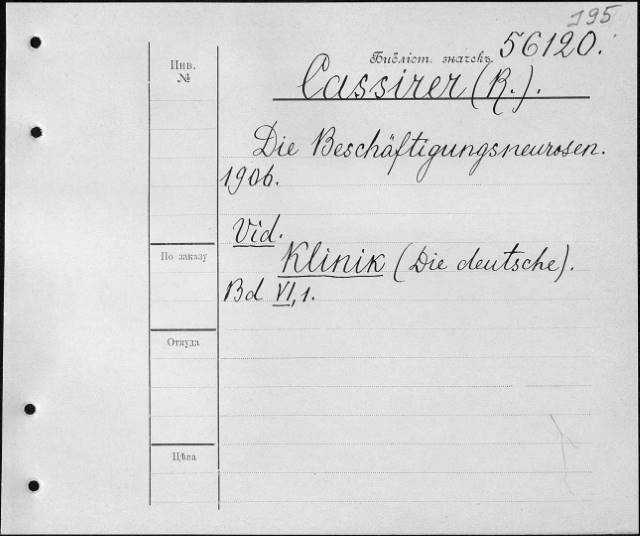 195
Инв.
№
Библіот. значекъ
56120.
Cassirer (R.).
Die Beschäftigungsneurosen.
1906.
Vid.
По заказу
Klinik (Die deutsche).
Bd VI, 1.
Откуда
Цѣна